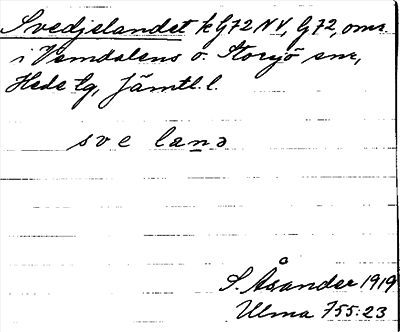 Svedjelandet k G72 NV, G72, omr.
i Vemdalens o. Storsjö snr,
Hede tg, Jämtl. l.
sve land
S. Åsander 1919
Ulma 755:23